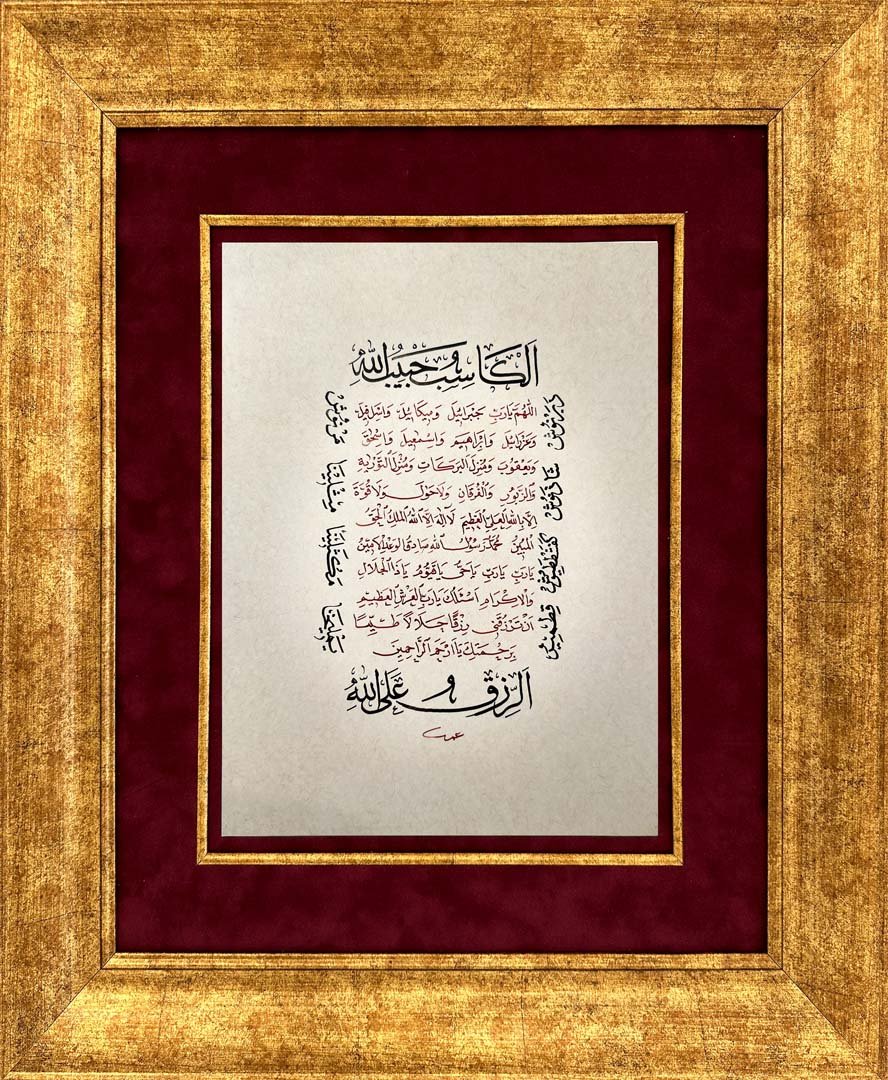 اَلْكَاسِبُ حَبِيبُ اللهِ
اَللّٰهُمَّ يَارَبِّ جَبْرَائِيلَ وَمِيكَائِيلَ وَاِسْرَافِيلَ
وَعَزْرَائِيلَ وَاِبْرَاهِيمَ وَاِسْمٰعِيلَ وَاِسْحٰقَ
وَيَعْقُوبَ وَمُنْزِلَ الْبَرَكَاتِ وَمُنْزِلَ التَّوْرٰيةِ
وَالزَّبُورِ وَالْفُرْقَانِ وَلَاحَوْلَ وَلَا قُوَّةَ
اِلَّا بِاللهِ الْعَلِيِّ الْعَظِيمِ لَا اِلٰهَ اِلَّا اللهُ الْمَلِكُ الْحَقُّ
الْمُبِينُ مُحَمَّدٌ رَسُولُ اللهِ صَادِقُ الْوَعْدِ الْاَمِينُ
يَارَبِّ يَارَبِّ يَاحَيُّ يَاقَيُّومُ يَاذَا الْجَلَالِ
وَالْاِكْرَامِ اَسْئَلُكَ يَارَبَّ الْعَرْشِ الْعَظِيمِ
اَنْ تَرْزُقَنِي رِزْقًا حَلَالًا طَيِّبًا
بِرَحْمَتِكَ يَا اَرْحَمَ الرَّاحِمِينَ
اَلرِّزْقُ عَلَى اللهِ
دَبَرْنُوشْ شَاذَنُوشْ كَفَشْطَطَيُوشْ قِطْمِيرْ
يَمْلِيخَا مَكْسَلِينَا مِثْلِينَا مَرْنُوشْ